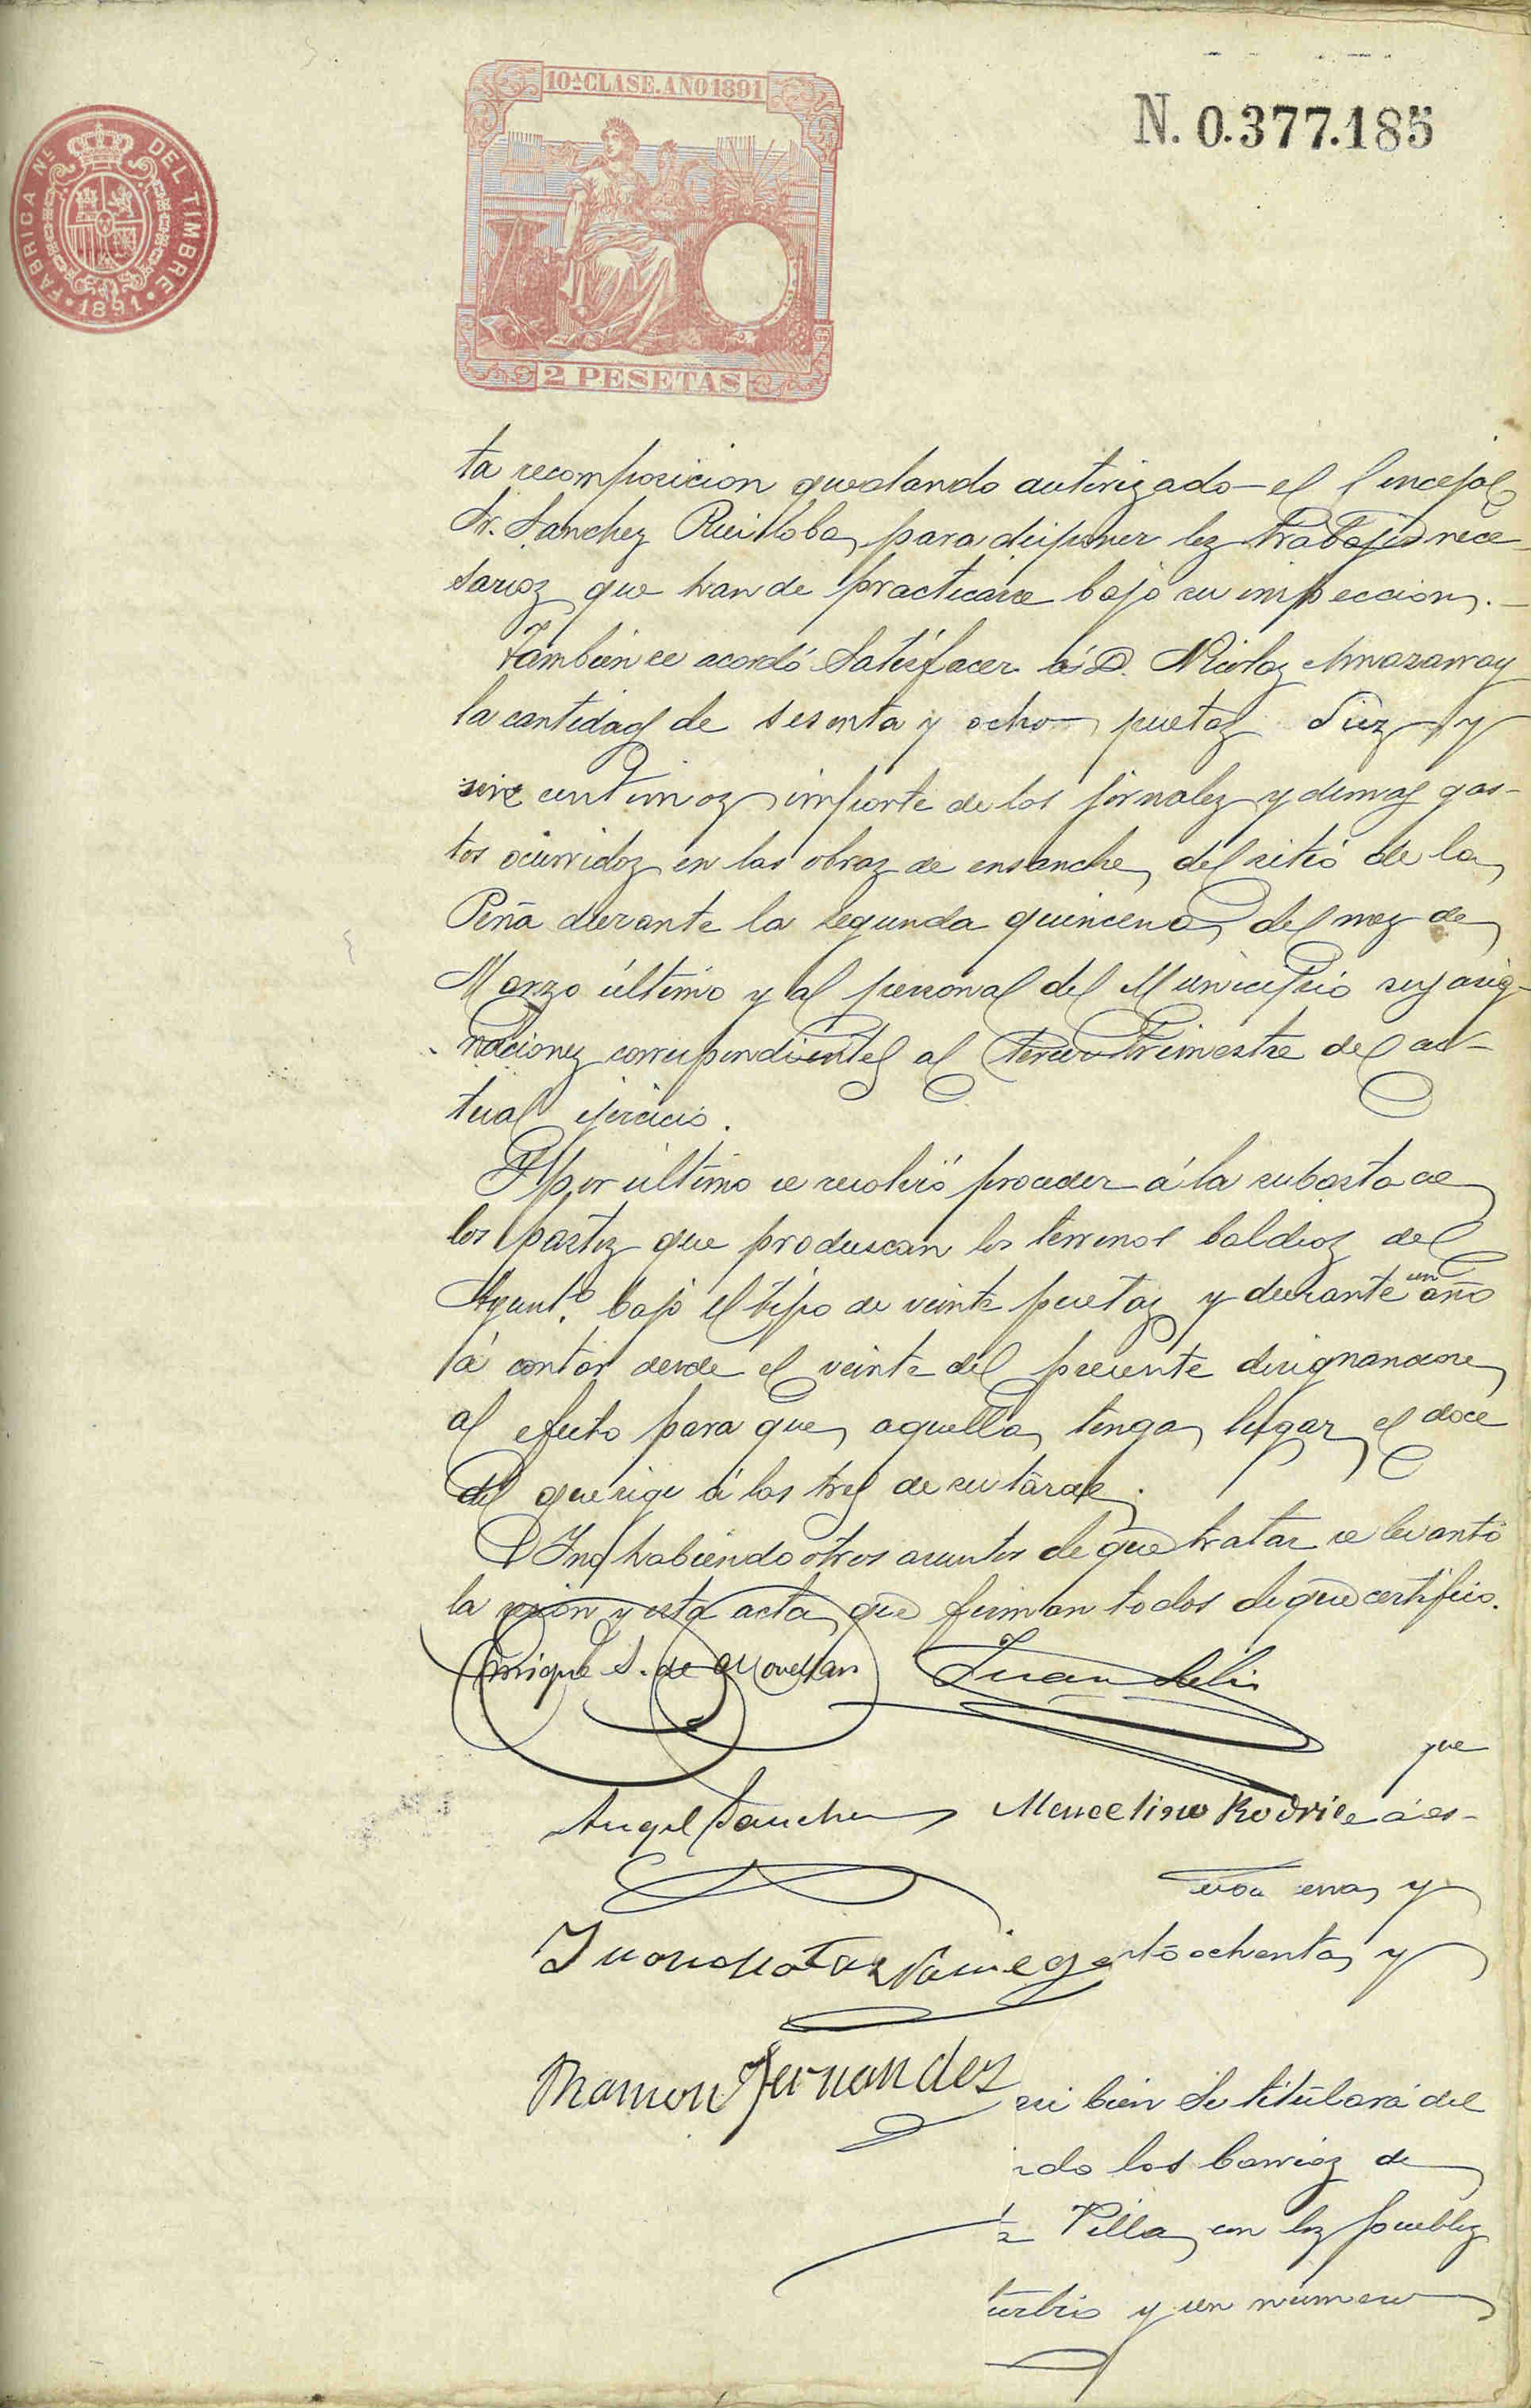 10ª CLASE. AÑO 1891
N. 0.377.185
FABRICA Nᴸ DEL TIMBRE
1891
2 PESETAS
ta recomposicion quedando autorizado el Concejal
Sr. Sanchez Ruilloba, para disponer los trabajos nece-
sarios que han de practicarse bajo su inspeccion.
Tambien se acordó Satisfacer á D. Nicolas
la cantidad de sesenta y ocho pesetas diez y
centimos importe de los jornales y demas gas-
tos ocurridos en las obras de ensanche del sitio de la
Peña durante la segunda quincena del mes de
Marzo último y al personal del Municipio sus asig-
naciones correspondientes al tercer trimestre del ac-
tual ejercicio.
Y por último se resolvió proceder á la subasta de
los pastos que produscan los terrenos baldios del
Ayunt.º bajo el tipo de veinte pesetas y durante un año
á contar desde el veinte del presente designandose
al efecto para que aquella tenga lugar el doce
del que rige á las tres de su tarde.
Y no habiendo otros asuntos de que tratar se levantó
la sesion y esta acta que firman todos de que certifico.
Enrique S. de Movellan Juan
que
Angel Sanchez Marcelino Rodri á es-
y
ochenta y
Ramon Fernandez
si bien se titulará del
do los barrios de
Villa con los pueblos
y un número